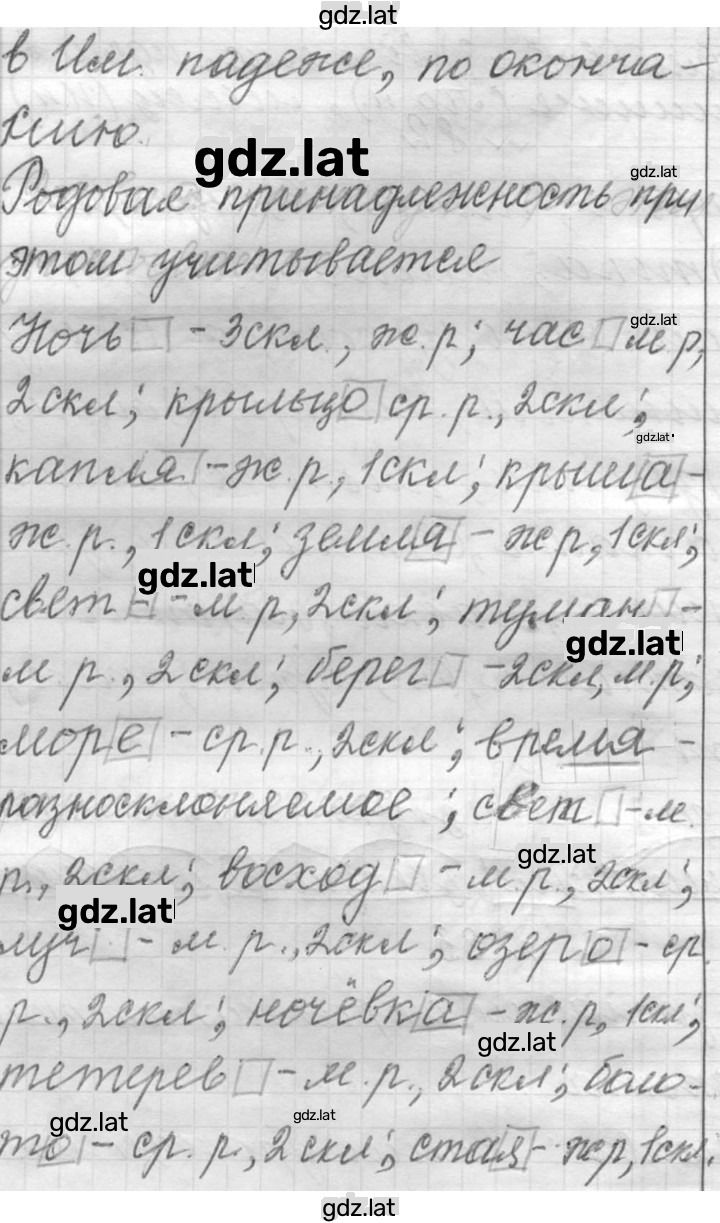 gdz.lat
в Им. падеже, по оконча-
нию.
gdz.lat
gdz.lat
Родовая принадлежность при
этом учитывается
gdz.lat
Ночь - 3скл., ж.р; час м.р,
2скл; крыльцо ср.р., 2скл;
gdz.lat
капля - ж.р., 1скл; крыша -
ж.р., 1скл; земля - ж.р, 1скл;
gdz.lat
свет - м.р, 2скл; туман -
gdz.lat
м.р., 2скл; берег - 2скл, м.р;
море - ср.р., 2скл; время -
разносклоняемое; свет - м.
gdz.lat
р., 2скл; восход - м.р., 2скл;
gdz.lat
луч - м.р., 2скл; озеро - ср.
р., 2скл; ночёвка - ж.р, 1скл;
gdz.lat
тетерев - м.р., 2скл; боло-
gdz.lat
gdz.lat
то - ср.р., 2скл; стая - ж.р, 1скл.
gdz.lat